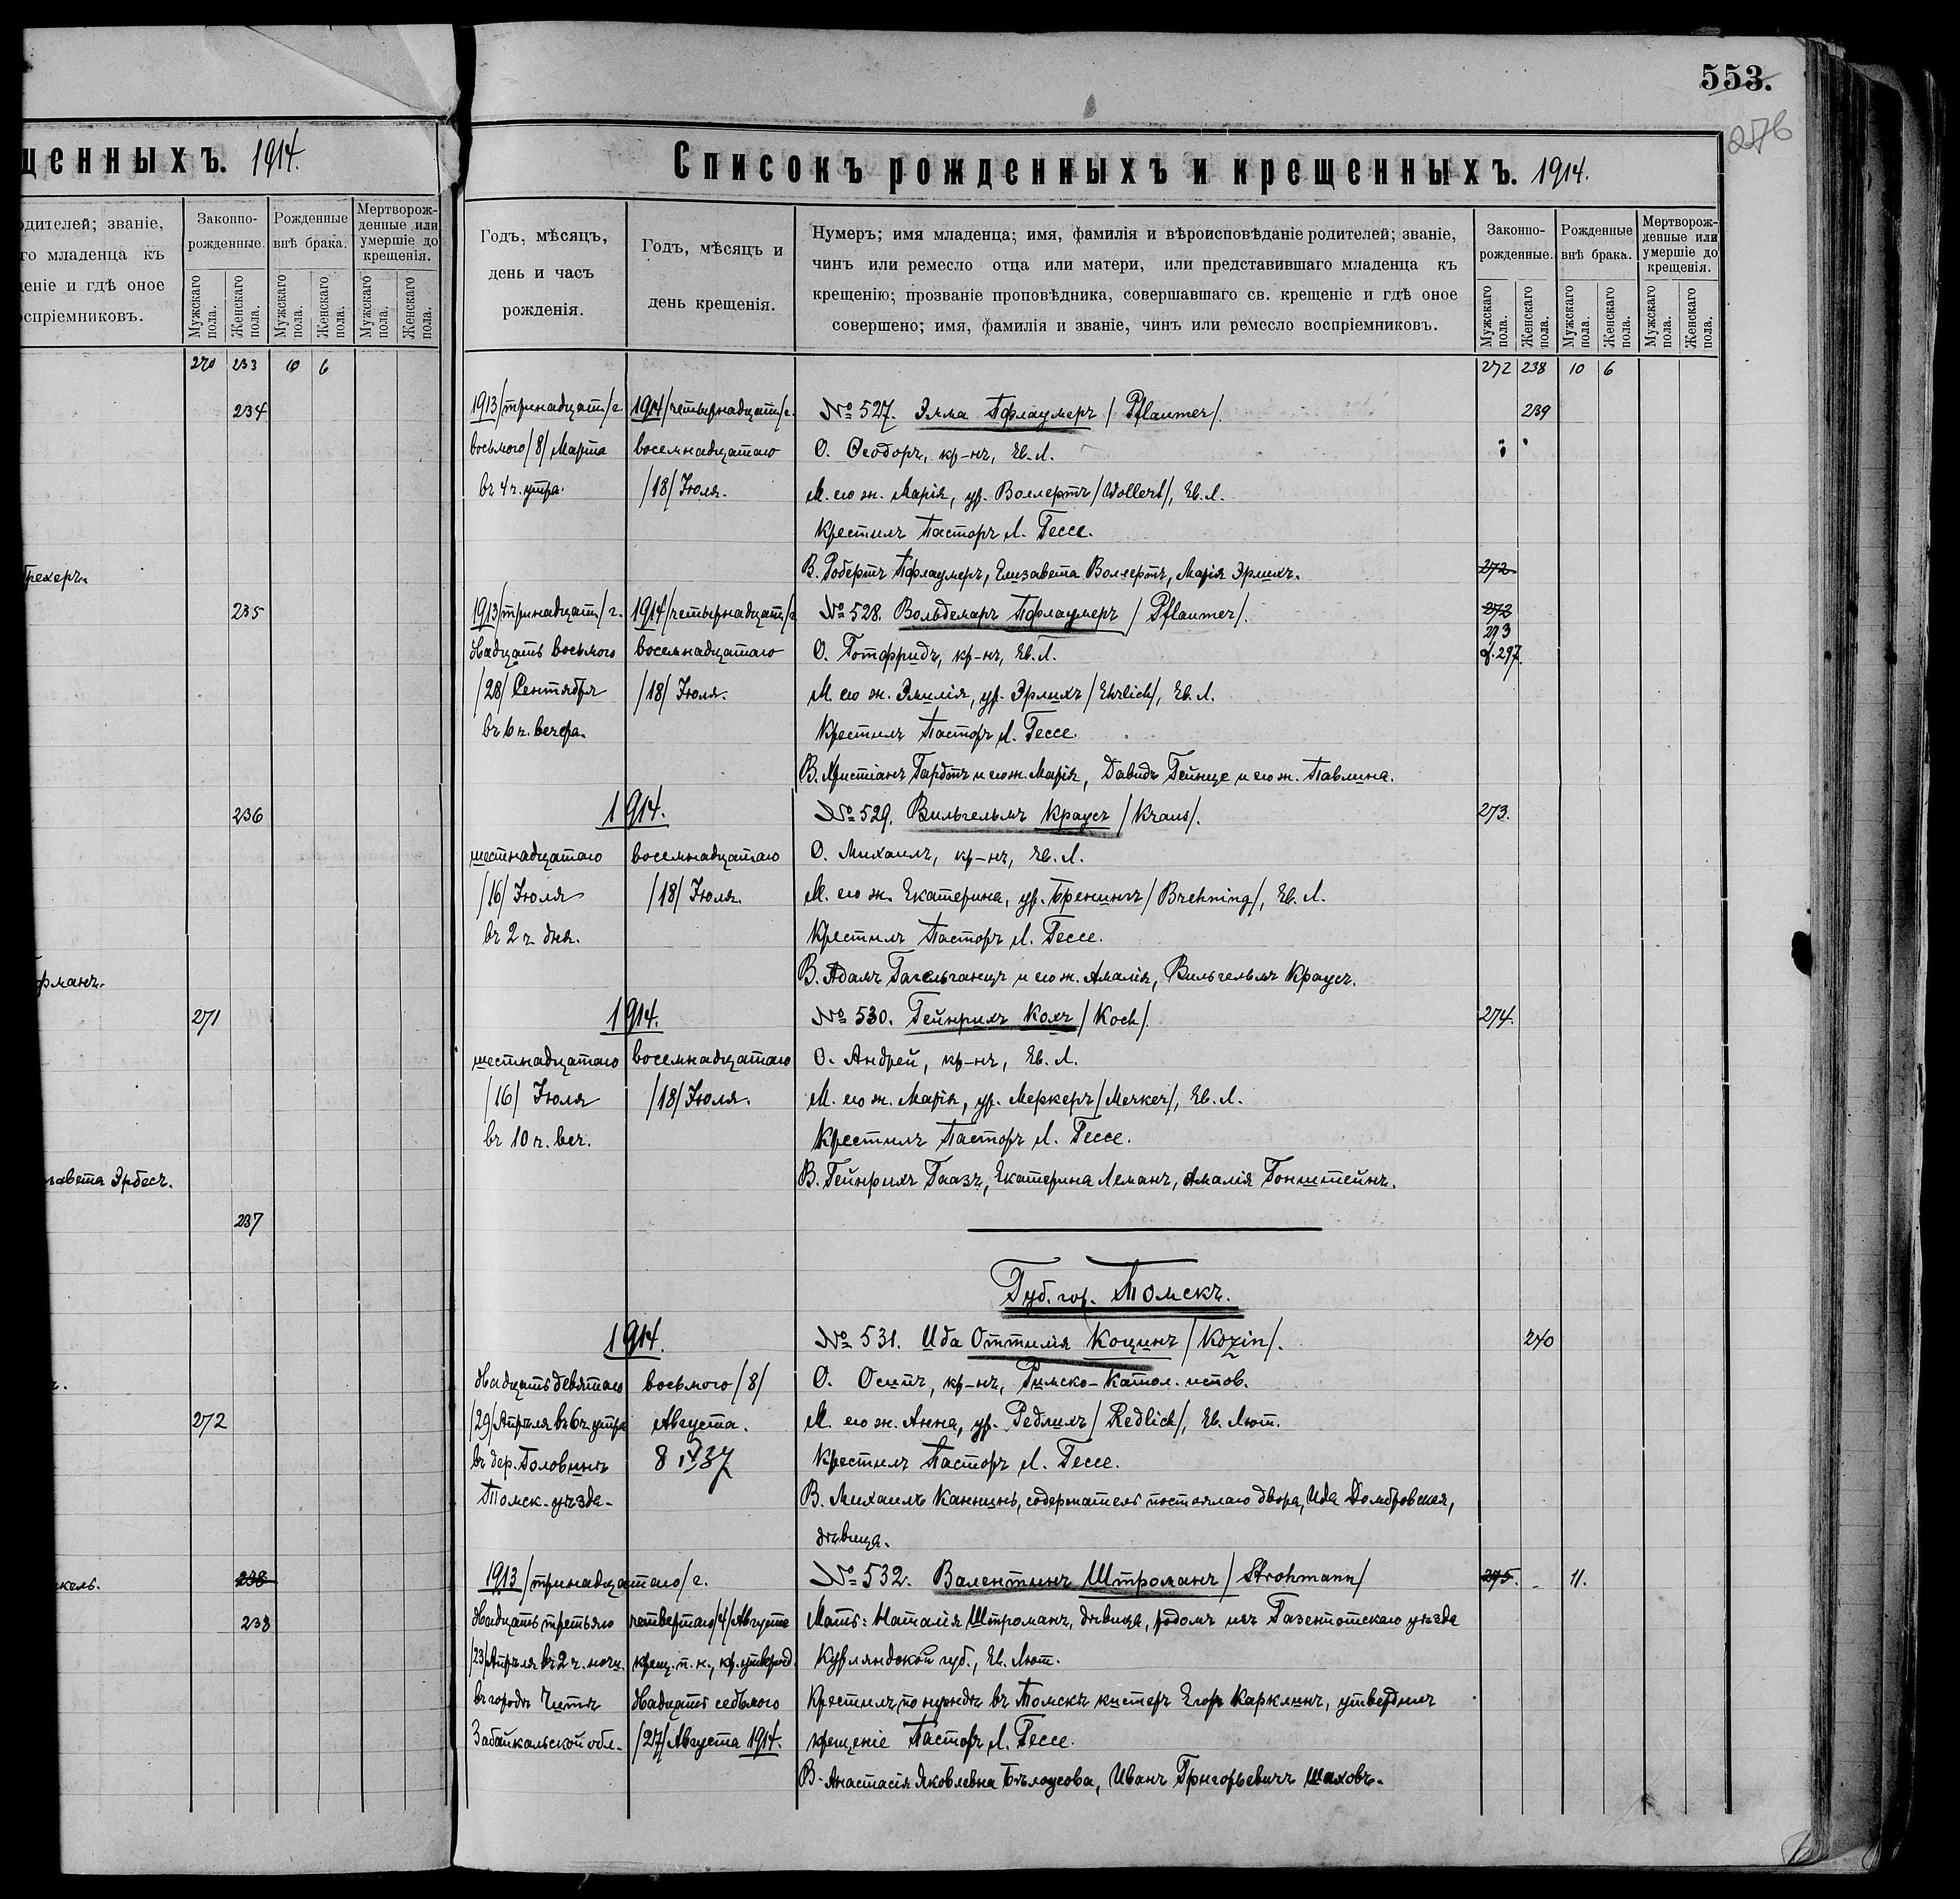 553.
276
щенныхъ. 1914.
одителей; званіе,
го младенца къ
деніе и гдѣ оное
оспріемниковъ.
Законно-рожденные.
Рожденные внѣ брака.
Мертворож-денные или умершіе до крещенія.
Мужскаго пола.
Женскаго пола.
Мужскаго пола.
Женскаго пола.
Мужскаго пола.
Женскаго пола.
270 233 10 6
234
235
236
фманъ.
271
завета Эрбесъ.
237
272
238
238
Списокъ рожденныхъ и крещенныхъ. 1914.
Годъ, мѣсяцъ,
день и часъ
рожденія.
Годъ, мѣсяцъ и
день крещенія.
Нумеръ; имя младенца; имя, фамилія и вѣроисповѣданіе родителей; званіе,
чинъ или ремесло отца или матери, или представившаго младенца къ
крещенію; прозваніе проповѣдника, совершавшаго св. крещеніе и гдѣ оное
совершено; имя, фамилія и званіе, чинъ или ремесло воспріемниковъ.
Законно-рожденные.
Рожденные внѣ брака.
Мертворож-денные или умершіе до крещенія.
Мужскаго пола.
Женскаго пола.
Мужскаго пола.
Женскаго пола.
Мужскаго пола.
Женскаго пола.
272 238 10 6
1913/тринадцат/г. 1914/четырнадцат/г. № 527. Эмма Пфлаумеръ /Pflaumer/. 239
восьмого/8/Марта восемнадцатаго О. Ѳеодоръ, кр-нъ, Ев. Л.
въ 4 ч. утра. /18/ Іюля. М. его ж. Марія, ур. Воллертъ /Wollert/, Ев. Л.
Крестилъ Пасторъ Л. Гессе.
В. Робертъ Пфлаумеръ, Елизавета Воллертъ, Марія Эрлихъ. 272
1913/тринадцат/г. 1914/четырнадцат/г. № 528. Вольдемаръ Пфлаумеръ /Pflaumer/. 272
273
двадцать восьмого восемнадцатаго О. Готфридъ, кр-нъ, Ев. Л. 297.
/28/ Сентября /18/ Іюля. М. его ж. Эмилія, ур. Эрлихъ /Ehrlich/, Ев. Л.
въ 6 ч. вечера. Крестилъ Пасторъ Л. Гессе.
В. Христіанъ Гардтъ и его ж. Марія, Давидъ Гейнце и его ж. Павлина.
1914. № 529. Вильгельмъ Краусъ /Kraus/. 273.
шестнадцатаго восемнадцатаго О. Михаилъ, кр-нъ, Ев. Л.
/16/ Іюля /18/ Іюля. М. его ж. Екатерина, ур. Бренингъ /Brehning/, Ев. Л.
въ 2 ч. дня. Крестилъ Пасторъ Л. Гессе.
В. Адамъ Гагельганцъ и его ж. Амалія, Вильгельмъ Краусъ.
1914. № 530. Гейнрихъ Кохъ /Koch/. 274.
шестнадцатаго восемнадцатаго О. Андрей, кр-нъ, Ев. Л.
/16/ Іюля /18/ Іюля. М. его ж. Марія, ур. Меркеръ /Merker/, Ев. Л.
въ 10 ч. веч. Крестилъ Пасторъ Л. Гессе.
В. Гейнрихъ Гаазъ, Екатерина Леманъ, Амалія Гонштейнъ.
Губ. гор. Томскъ.
1914. № 531. Ида Оттилія Коцинъ /Kozin/. 240
двадцать девятаго восьмого /8/ О. Осипъ, кр-нъ, Римско-Катол. испов.
/29/ Апрѣля въ 6 ч. утра Августа. М. его ж. Анна, ур. Редлихъ /Redlich/, Ев. Лют.
въ дер. Головинъ 8 IV 37 Крестилъ Пасторъ Л. Гессе.
Томск. уѣзда. В. Михаилъ Каннинъ, содержатель постоялаго двора, Ида Домбровская,
дѣвица.
1913/тринадцатаго/г. № 532. Валентинъ Штроманъ /Strohmann/ 275. 11.
двадцать третьяго четвертаго/4/Августа Мать: Наталія Штроманъ, дѣвица, родомъ изъ Газенпотскаго уѣзда
/23/ Апрѣля въ 2 ч. ночи. крещ. п. н., кр. утвержд. Курляндской губ., Ев. Лют.
въ городѣ Читѣ двадцать седьмого Крестилъ по нуждѣ въ Томскѣ кистеръ Егоръ Карклинъ, утвердилъ
Забайкальской обл. /27/ Августа 1914. крещеніе Пасторъ Л. Гессе.
В. Анастасія Яковлевна Бѣлоусова, Иванъ Григорьевичъ Шаховъ.